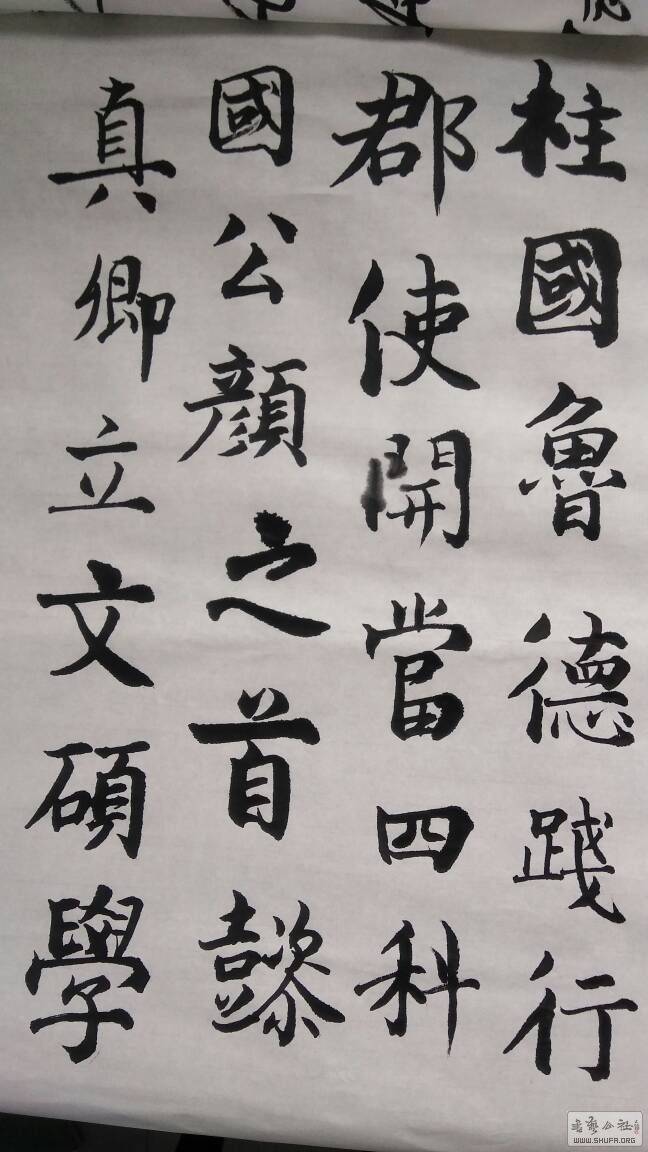 柱國魯德踐行
郡使開當四科
國公顏之首懿
真卿立文碩學
书艺公社
WWW.SHUFA.ORG